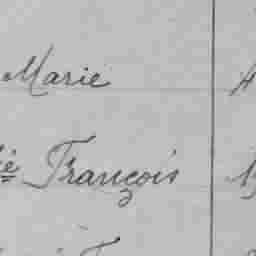 Marie
ié François